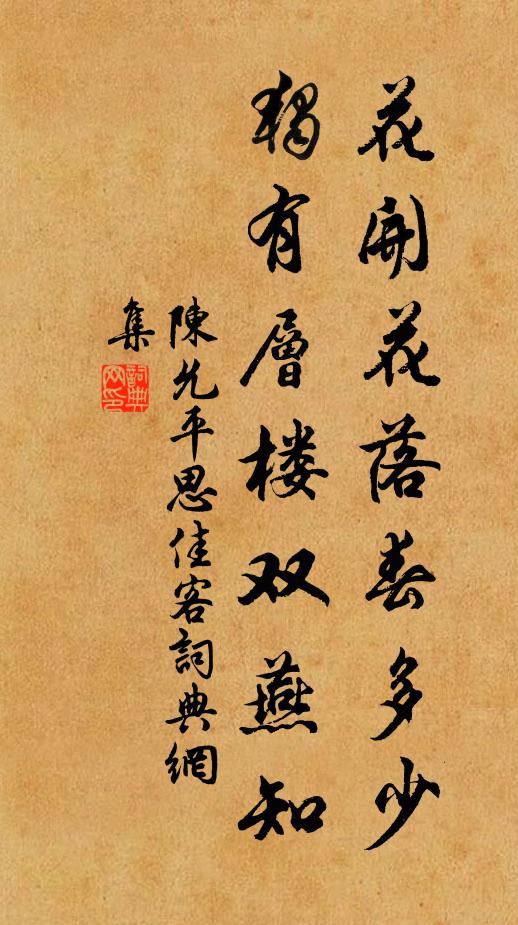 花開花落春多少
獨有層楼双燕知
陳允平思佳客詞典網
集
詞典
网印